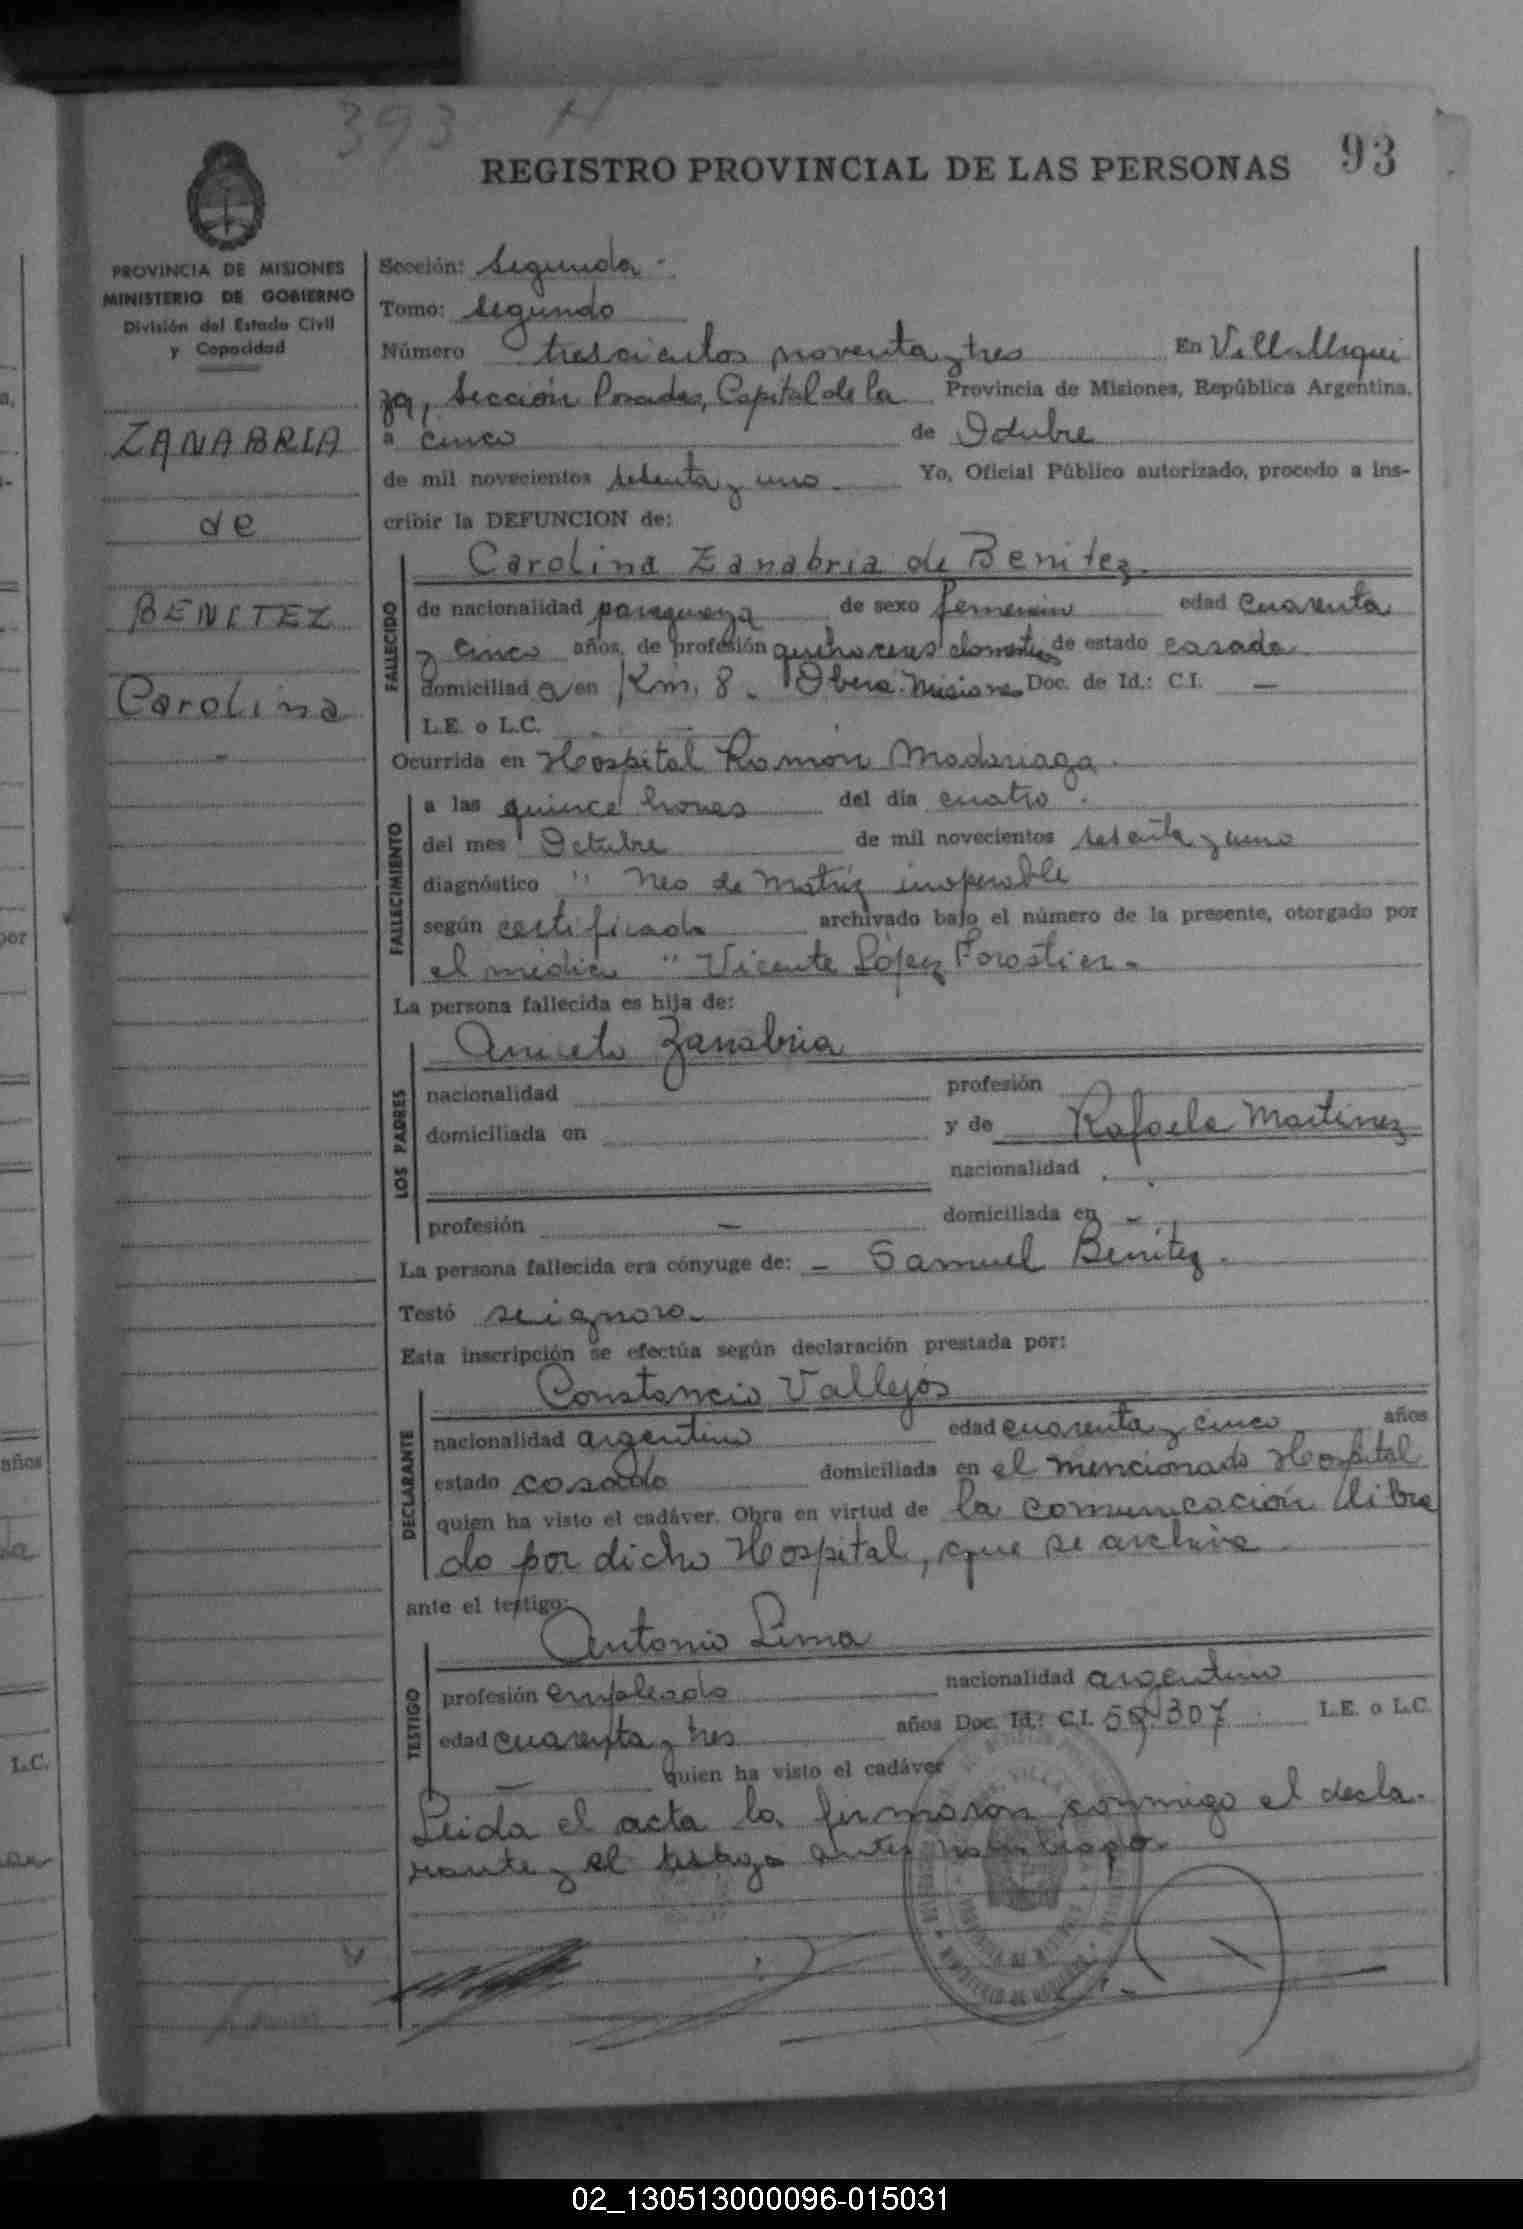 393 H
REGISTRO PROVINCIAL DE LAS PERSONAS 93
PROVINCIA DE MISIONES
MINISTERIO DE GOBIERNO
División del Estado Civil
y Capacidad
ZANABRIA
de
BENITEZ
Carolina
Sección: Segunda
Tomo: Segundo
Número trescientos noventa y tres En Villa Urqui
za, Sección Posadas, Capital de la Provincia de Misiones, República Argentina,
a cinco de Octubre
de mil novecientos setenta y uno Yo, Oficial Público autorizado, procedo a ins-
cribir la DEFUNCION de:
FALLECIDO
Carolina Zanabria de Benitez.
de nacionalidad paraguaya de sexo femenin edad cuarenta
y cinco años, de profesión quehaceres domesticos de estado casada
domiciliad a en Km. 8 - Obera. Misiones Doc. de Id.: C.I. —
L.E. o L.C.
Ocurrida en Hospital Ramón Madariaga.
FALLECIMIENTO
a las quince horas del día cuatro.
del mes Octubre de mil novecientos setenta y uno
diagnóstico " Neo de Matriz inoperable
según certificado archivado bajo el número de la presente, otorgado por
el médico " Vicente López Forastier.-
La persona fallecida es hija de:
LOS PADRES
Aniceto Zanabria
nacionalidad profesión
domiciliada en y de Rafaela Martinez
nacionalidad
profesión — domiciliada en -
La persona fallecida era cónyuge de: - Samuel Benitez.
Testó se ignora.
Esta inscripción se efectúa según declaración prestada por:
DECLARANTE
Constancio Vallejos
nacionalidad argentino edad cuarenta y cinco años
estado casado domiciliada en el mencionado Hospital
quien ha visto el cadáver. Obra en virtud de la comunicación libra
do por dicho Hospital, que se archiva
ante el testigo:
TESTIGO
Antonio Lima
profesión empleado nacionalidad argentino
edad cuarenta y tres años Doc. Id.: C.I. 59.307 L.E. o L.C.
— quien ha visto el cadáver
Leida el acta la firmaron conmigo el decla-
rante y el testigo antes nombrado.
02_130513000096-015031
años
L.C.
por